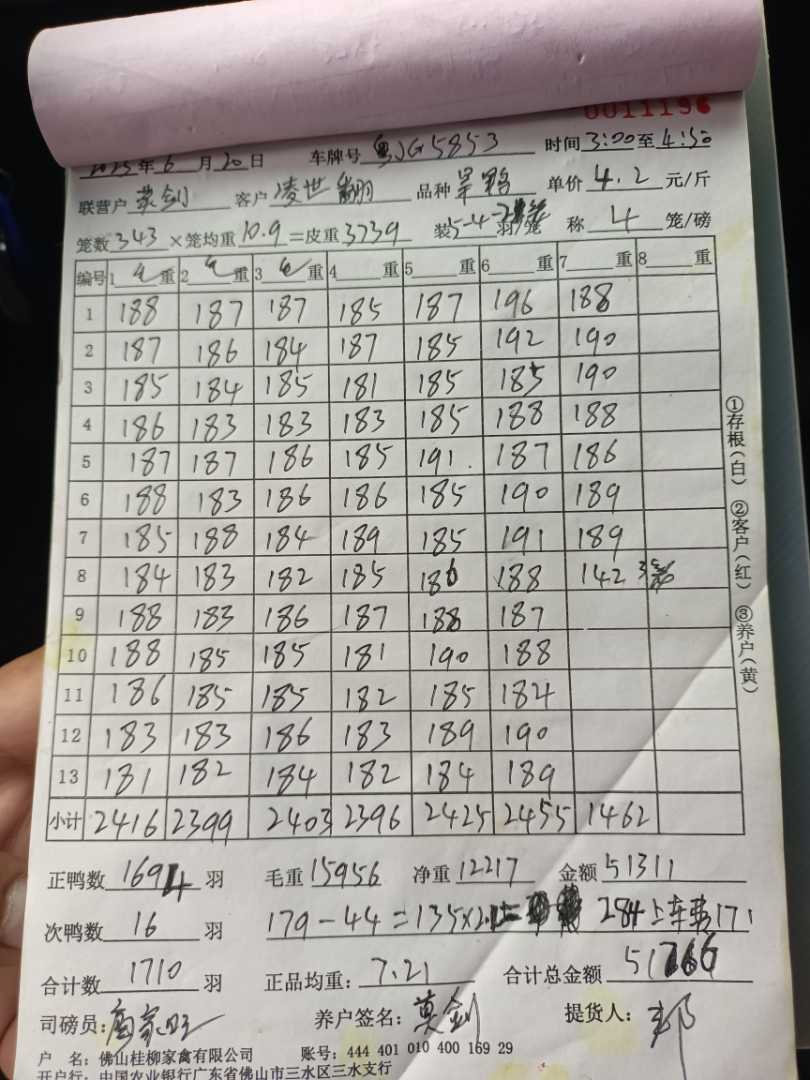 0011196
2025年6月20日 车牌号 粤JG5853 时间3:00至4:50
联营户 莫剑 客户 凌世翻 品种 单价 4.2 元/斤
笼数343×笼均重10.9=皮重3739 装5-4-2羽/笼 称 4 笼/磅
编号 1 重 2 重 3 重 4 重 5 重 6 重 7 重 8 重
1 188 187 187 185 187 196 188
2 187 186 184 187 185 192 190
3 185 184 185 181 185 185 190
4 186 183 183 183 185 188 188
5 187 187 186 185 191. 187 186
6 188 183 186 186 185 190 189
7 185 188 184 189 185 191 189
8 184 183 182 185 186 188 142 3笼
9 188 183 186 187 188 187
10 188 185 185 181 190 188
11 186 185 185 182 185 184
12 183 183 186 183 189 190
13 181 182 184 182 184 189
小计 2416 2399 2403 2396 2425 2455 1462
正鸭数 1694 羽 毛重 15956 净重 12217 金额 51311
次鸭数 16 羽 179-44=135× 284 上车 171
合计数 1710 羽 正品均重: 7.21 合计总金额 51766
司磅员: 养户签名: 莫剑 提货人: 郭
户 名: 佛山桂柳家禽有限公司 账号: 444 401 010 400 169 29
开户行: 中国农业银行广东省佛山市三水区三水支行
①存根(白) ②客户(红) ③养户(黄)